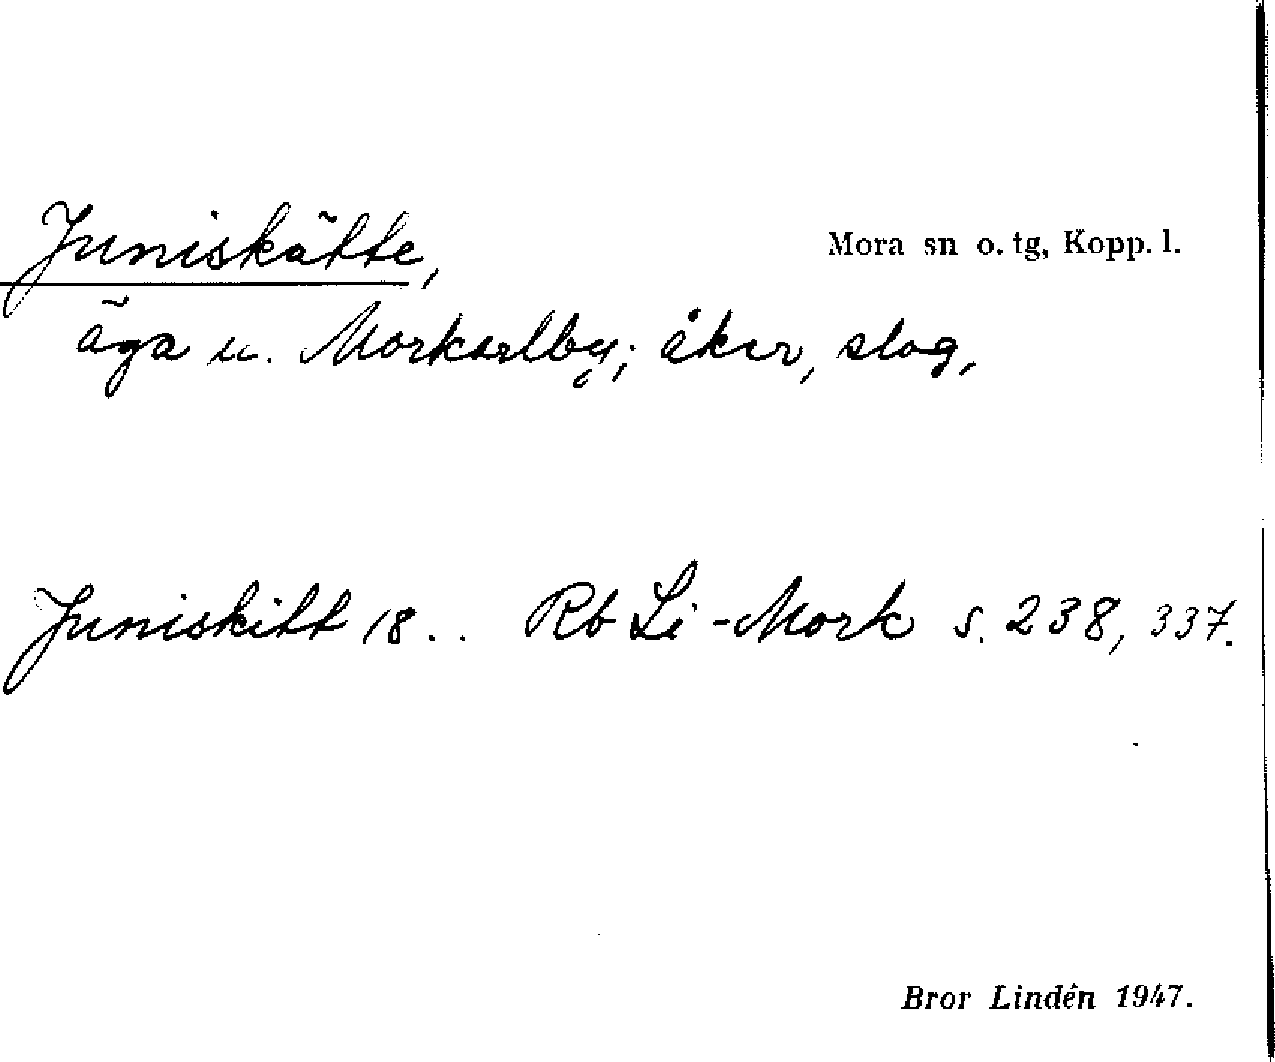 Juniskätte,
Mora sn o. tg, Kopp. l.
äga u. Morkarlby; åker, slog,
Juniskitt 18.. Rb Li-Mork s. 238, 337.
Bror Lindén 1947.